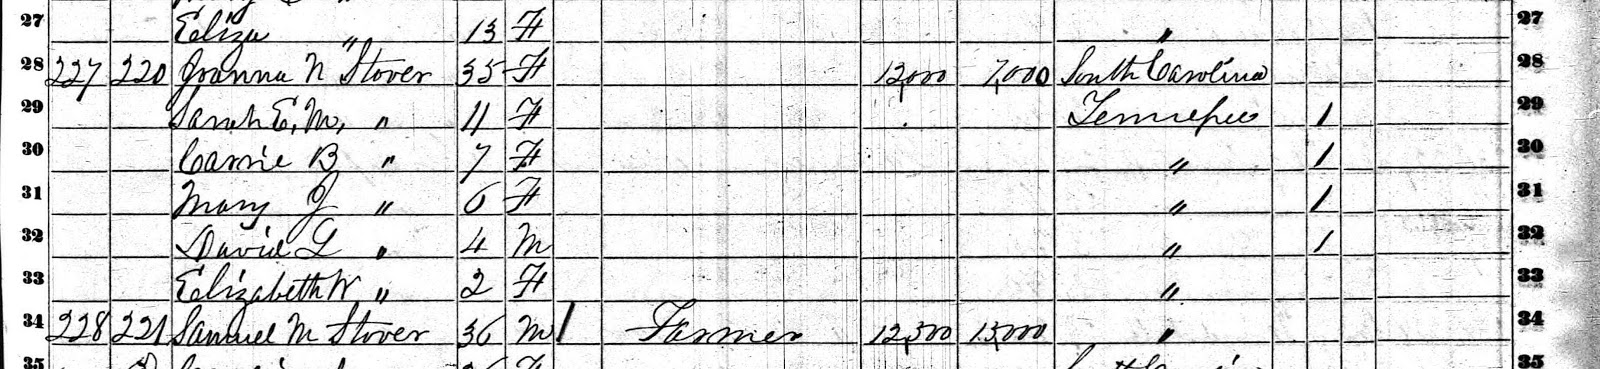 27 Eliza " 13 F " 27
28 227 220 Joanna N Stover 35 F 12,000 7,000 South Carolina 28
29 Sarah E. M. " 11 F Tennessee / 29
30 Carrie B " 7 F " / 30
31 Mary J " 6 F " / 31
32 David L " 4 M " / 32
33 Elizabeth W " 2 F " 33
34 228 221 Samuel M Stover 36 M / Farmer 12,300 13,000 " 34
35 35